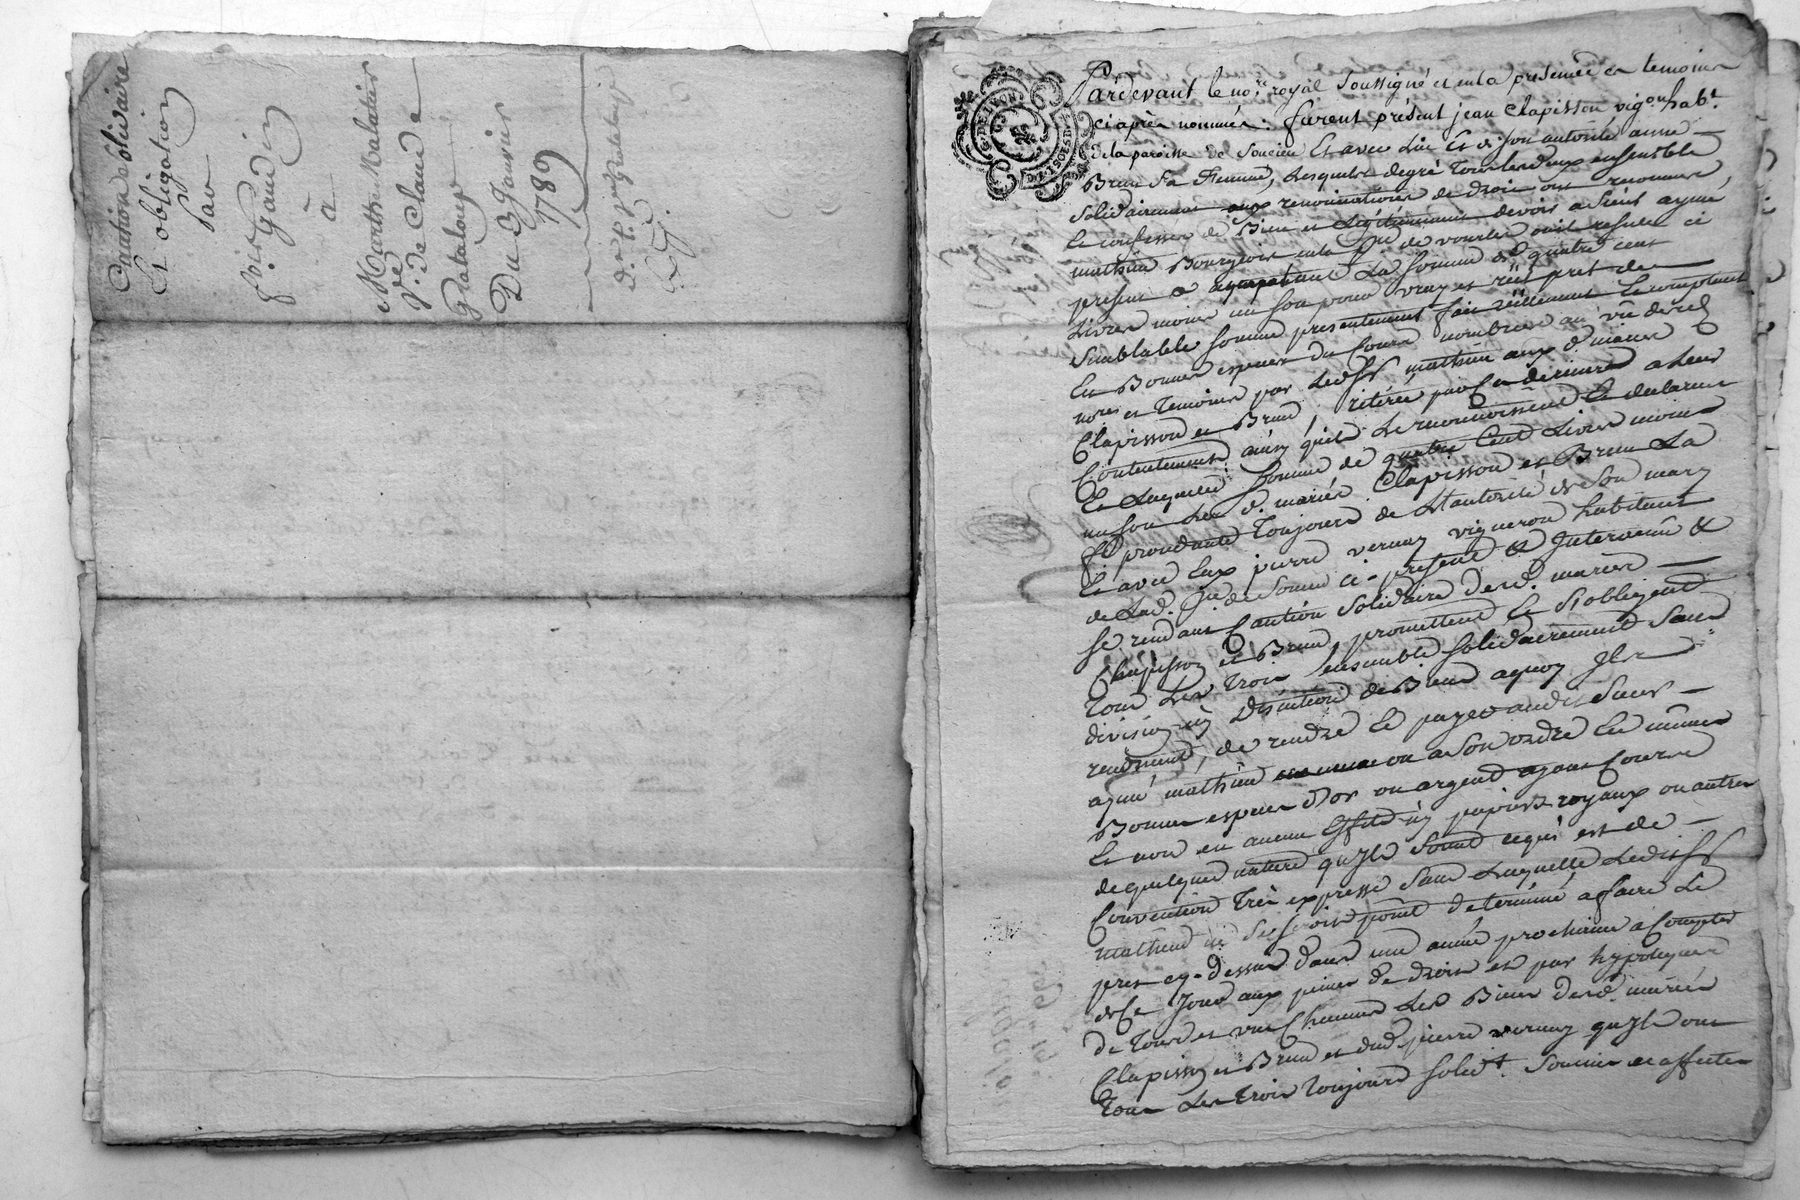 Cauthion solidaire
Et obligation
Par
Gaudin
à
Marthe Malatier
Ve. de Claude
Grataloup
Du 3 Janvier
1789
GE. DE LYON
DIX SOLS
Pardevant le nore. royal soussigné et en la presence des temoins
ci après nommés : furent présent jean Clapisson vigon. habt.
de la paroisse de Soucieu Et avec lui Et de son autorité anne
Brun sa femme, lesquels degré tous les deux ensemble
solidairement aux renonciations de droit ont reconnus
Et confessés de Bien et légitimement devoir a sieur aymé
mathieu Bourgeois en la pse. de vourles ou il reside ci
present & acceptant La somme de quatre cent
Livres moins un sou pour vray et réel pret de
semblable somme presentement fait réellement Et comptant
En Bonnes especes du Cours nombrées au vu desd.
nores et temoins par ledit sr. mathieu aux d. mariés
Clapisson et Brun, retirée par Ces derniers a leur
Contentement ainsy qu'ils le reconnoissent Et declarent
Et Laquelle somme de quatre Cent Livres moins
un sou les d. mariés Clapisson et Brun La
fe. procedante toujours de L'autorité de son mary
Et avec Eux pierre vernay vigneron habitant
de Lad. pse. de Soucieu ci-present & Intervenu &
se rendant Caution solidaire desd. mariés
Clapisson et Brun, promettent Et s'obligent
Tous Les Trois ensemble solidairement sans
division ny discution de Biens a quoy Ils
renoncent, de rendre Et payer audit sieur
aymé mathieu ou a son ordre En mêmes
Bonnes especes d'or ou argent ayant Cours
Et non en aucun Effet ny papiers royaux ou autres
de quelque nature qu'Ils soient ce qui est de
Convention Très expresse sans Laquelle Ledit sr.
mathieu ne se seroit point déterminé a faire Le
pret cy-dessus dans une année prochaine a Compter
de Ce Jour aux peines de droit et par hypoteque
de Tous et un Chacuns Les Biens desd. mariés
Clapisson et Brun et dud. pierre vernay qu'Ils ont
Tous Les trois Toujours solidt. soumis et affectés